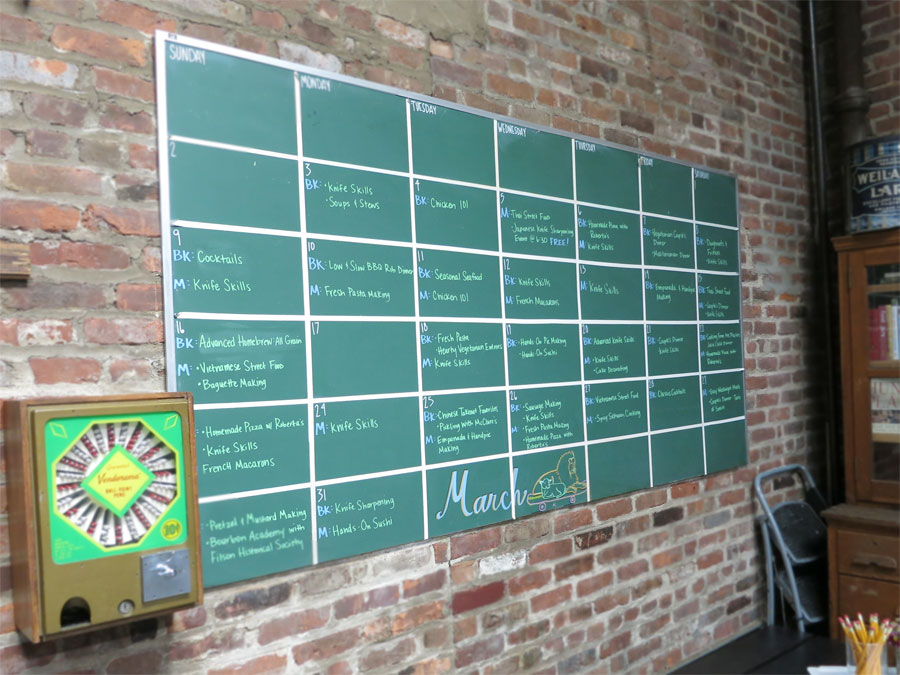 SUNDAY
MONDAY
TUESDAY
WEDNESDAY
THURSDAY
FRIDAY
SATURDAY
2
3
BK: • Knife Skills
• Soups & Stews
4
BK: Chicken 101
5
M: Thai Street Food
• Japanese Knife Sharpening
Event @ 6:30 FREE!
6
BK: Homemade Pizza with
Roberta's
M: Knife Skills
BK: Vegetarian Couple's
Dinner
• Mediterranean Dinner
BK: Doughnuts &
Fritters
• Knife Skills
9
BK: Cocktails
M: Knife Skills
10
BK: Low & Slow BBQ Rib Dinner
M: Fresh Pasta Making
11
BK: Seasonal Seafood
M: Chicken 101
12
BK: Knife Skills
M: French Macarons
13
M: Knife Skills
M: Empanada & Handpie
Making
BK: Thai Street Food
M: Couple's Dinner
• Knife Skills
16
BK: Advanced Homebrew: All Grain
M: • Vietnamese Street Food
• Baguette Making
17
18
BK: • Fresh Pasta
• Hearty Vegetarian Entrees
M: Knife Skills
19
BK: • Hands-On Pie Making
• Hands-On Sushi
20
BK: Advanced Knife Skills
M: • Knife Skills
• Cake Decorating
21
BK: Couple's Dinner
Knife Skills
22
• Homemade Pizza with
Roberta's
• Homemade Pizza w/ Roberta's
• Knife Skills
French Macarons
24
M: Knife Skills
25
BK: • Chinese Takeout Favorites
• Pickling with McClure's
M: Empanada & Handpie
Making
26
BK: • Sausage Making
• Knife Skills
M: • Fresh Pasta Making
• Homemade Pizza with
Roberta's
27
BK: Vietnamese Street Food
M: Spring Salmon Cooking
28
BK: Classic Cocktails
• Pretzel & Mustard Making
• Bourbon Academy with
Filson Historical Society
31
BK: Knife Sharpening
M: Hands-On Sushi
March
Vendorama
BALL POINT
PENS
10¢
LARD